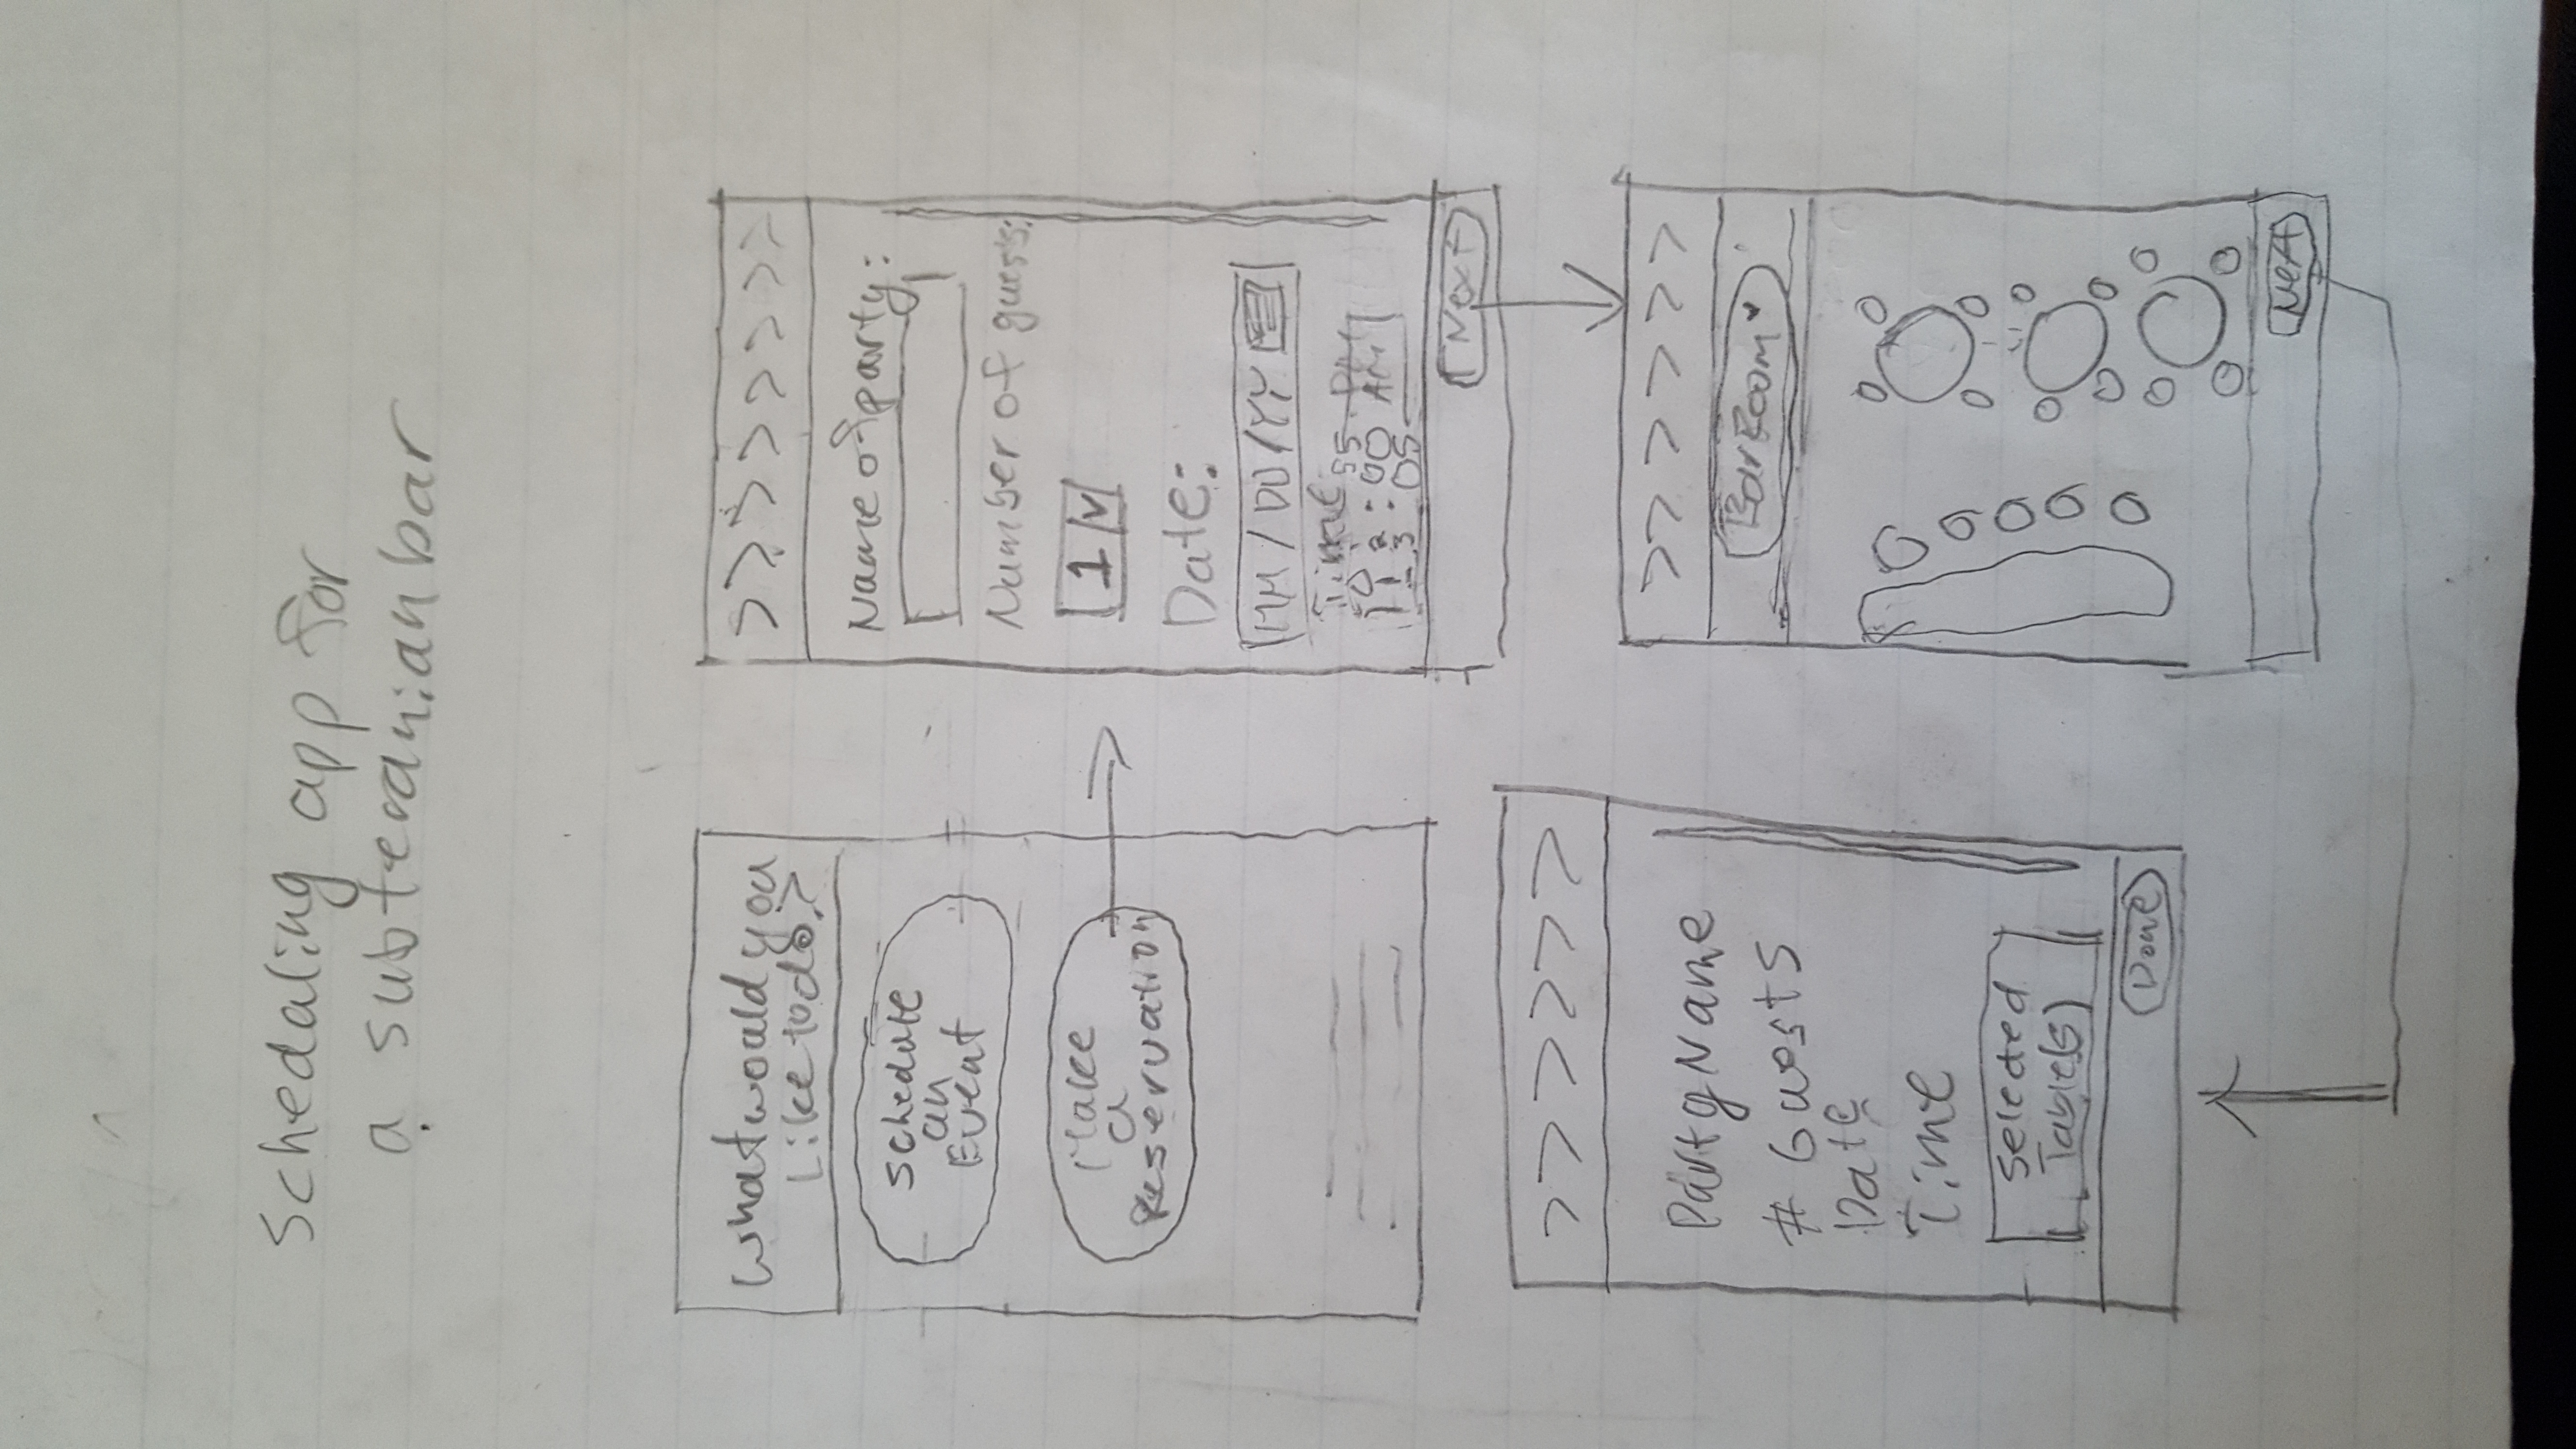 Schedaling app for
a subteranian bar
What would you
Like to do?
Schedule
an
Event
Make
a
Reservation
> > > > > > > >
Name of party:
Number of guests:
1 v
Date:
MM / DD / YY
Time
0 1 55 PM
1 2 : 00 AM
2 3 05
Next
> > > > > >
Bar Room
Next
> > > > > >
Party Name
# Guests
Date
Time
Selected
Table(s)
Done